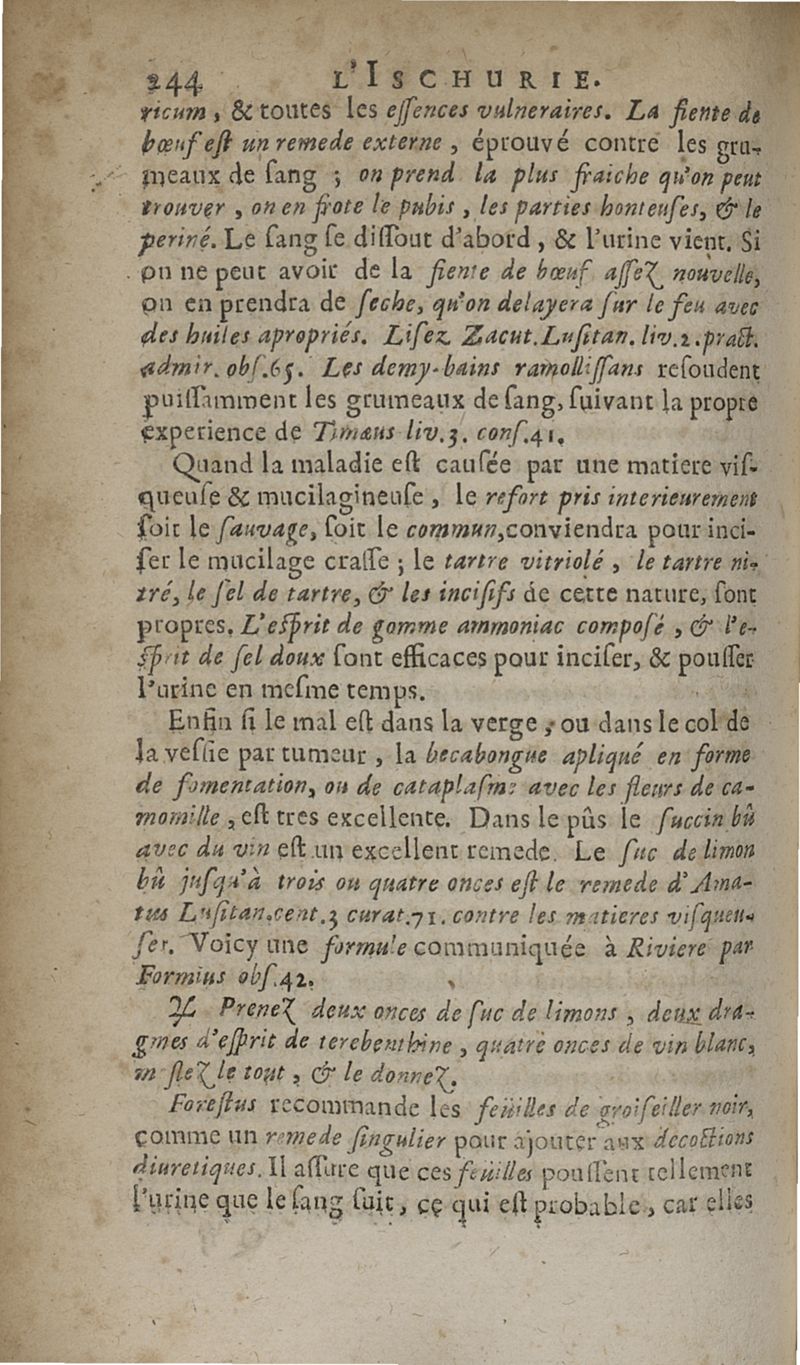 244 L'ISCHURIE.
ricum, & toutes les eſſences vulneraires. La fiente de
bœuf eſt un remede externe, éprouvé contre les gru-
meaux de ſang ; on prend la plus fraiche qu'on peut
trouver, on en frote le pubis, les parties honteuſes, & le
periné. Le ſang ſe diſſout d'abord, & l'urine vient. Si
on ne peut avoir de la fiente de bœuf aſſeZ nouvelle,
on en prendra de ſeche, qu'on delayera ſur le feu avec
des huiles apropriés. Liſez Zacut.Luſitan. liv.2.pract.
admir. obſ.65. Les demy-bains ramolliſſans reſoudent
puiſſamment les grumeaux de ſang, ſuivant la propre
experience de Timæus liv.3. conſ.41.
Quand la maladie eſt cauſée par une matiere viſ-
queuſe & mucilagineuſe, le refort pris interieurement
ſoit le ſauvage, ſoit le commun, conviendra pour inci-
ſer le mucilage craſſe ; le tartre vitriolé, le tartre ni-
tré, le ſel de tartre, & les inciſifs de cette nature, ſont
propres. L'eſprit de gomme ammoniac compoſé, & l'e-
ſprit de ſel doux ſont efficaces pour inciſer, & pouſſer
l'urine en meſme temps.
Enfin ſi le mal eſt dans la verge, ou dans le col de
la veſſie par tumeur, la becabongue apliqué en forme
de fomentation, ou de cataplaſme avec les fleurs de ca-
momille, eſt tres excellente. Dans le pûs le ſuccin bû
avec du vin eſt un excellent remede. Le ſuc de limon
bû juſqu'à trois ou quatre onces eſt le remede d'Ama-
tus Luſitan.cent.3 curat.71. contre les matieres viſqueu-
ſes. Voicy une formule communiquée à Riviere par
Formius obſ.42.
♃ PreneZ deux onces de ſuc de limons, deux dra-
gmes d'eſprit de terebenthine, quatre onces de vin blanc,
mſleZ le tout, & le donneZ.
Foreſtus recommande les feüilles de groiſeiller noir,
comme un remede ſingulier pour ajouter aux decoctions
diuretiques. Il aſſure que ces feüilles pouſſent tellement
l'urine que le ſang ſuit, ce qui eſt probable, car elles